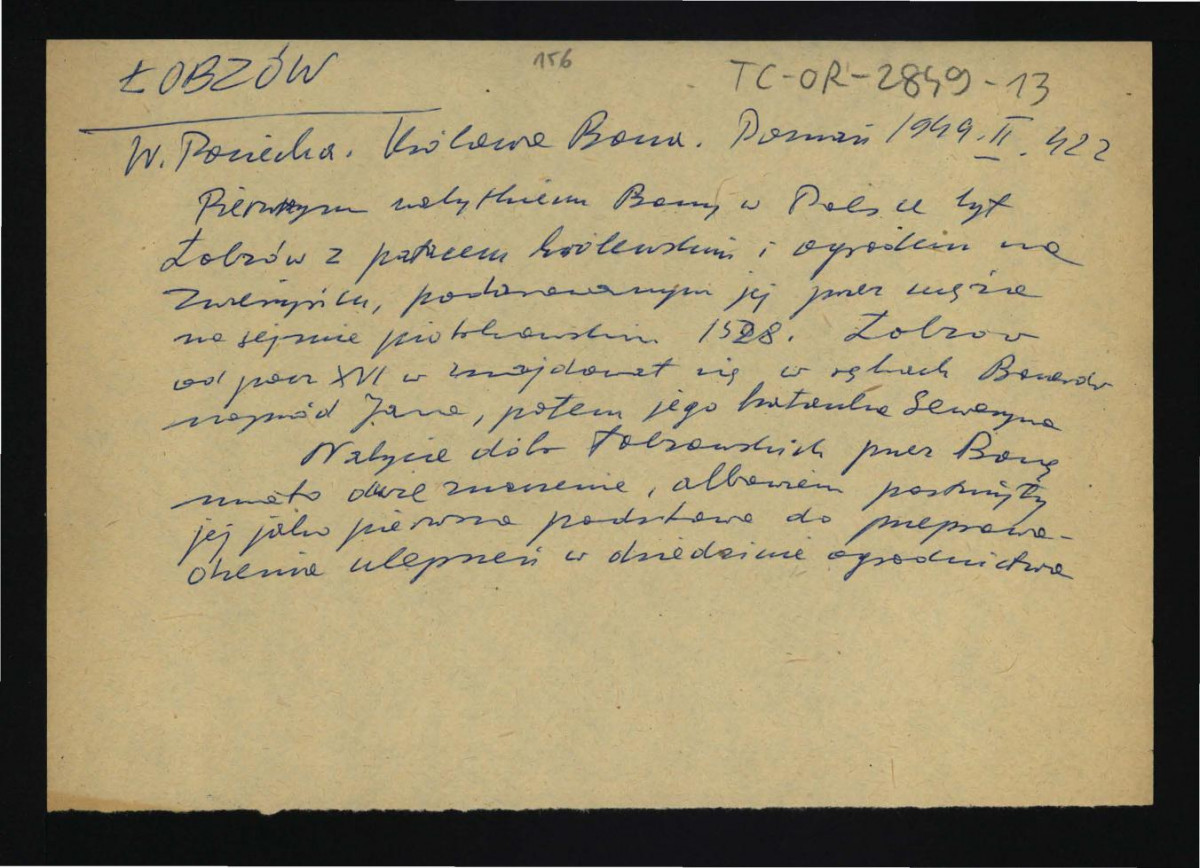 ŁOBZÓW
156
TC-OR-2849-13
W. Pociecha. Królowa Bona. Poznań 1949. II. 422
Pierwszym nabytkiem Bony w Polsce był
Łobzów z pałacem królewskim i ogrodem na
Zwierzyńcu, podarowanym jej przez męża
na sejmie piotrkowskim 1528. Łobzow
od pocz XVI w znajdował się w rękach Bonerów
naprzód Jana, potem jego bratanka Seweryna
Nabycie dóbr łobzowskich przez Bonę
miało duże znaczenie, albowiem posłużyły
jej jako pierwsza podstawa do przeprowa-
dzenia ulepszeń w dziedzinie ogrodnictwa